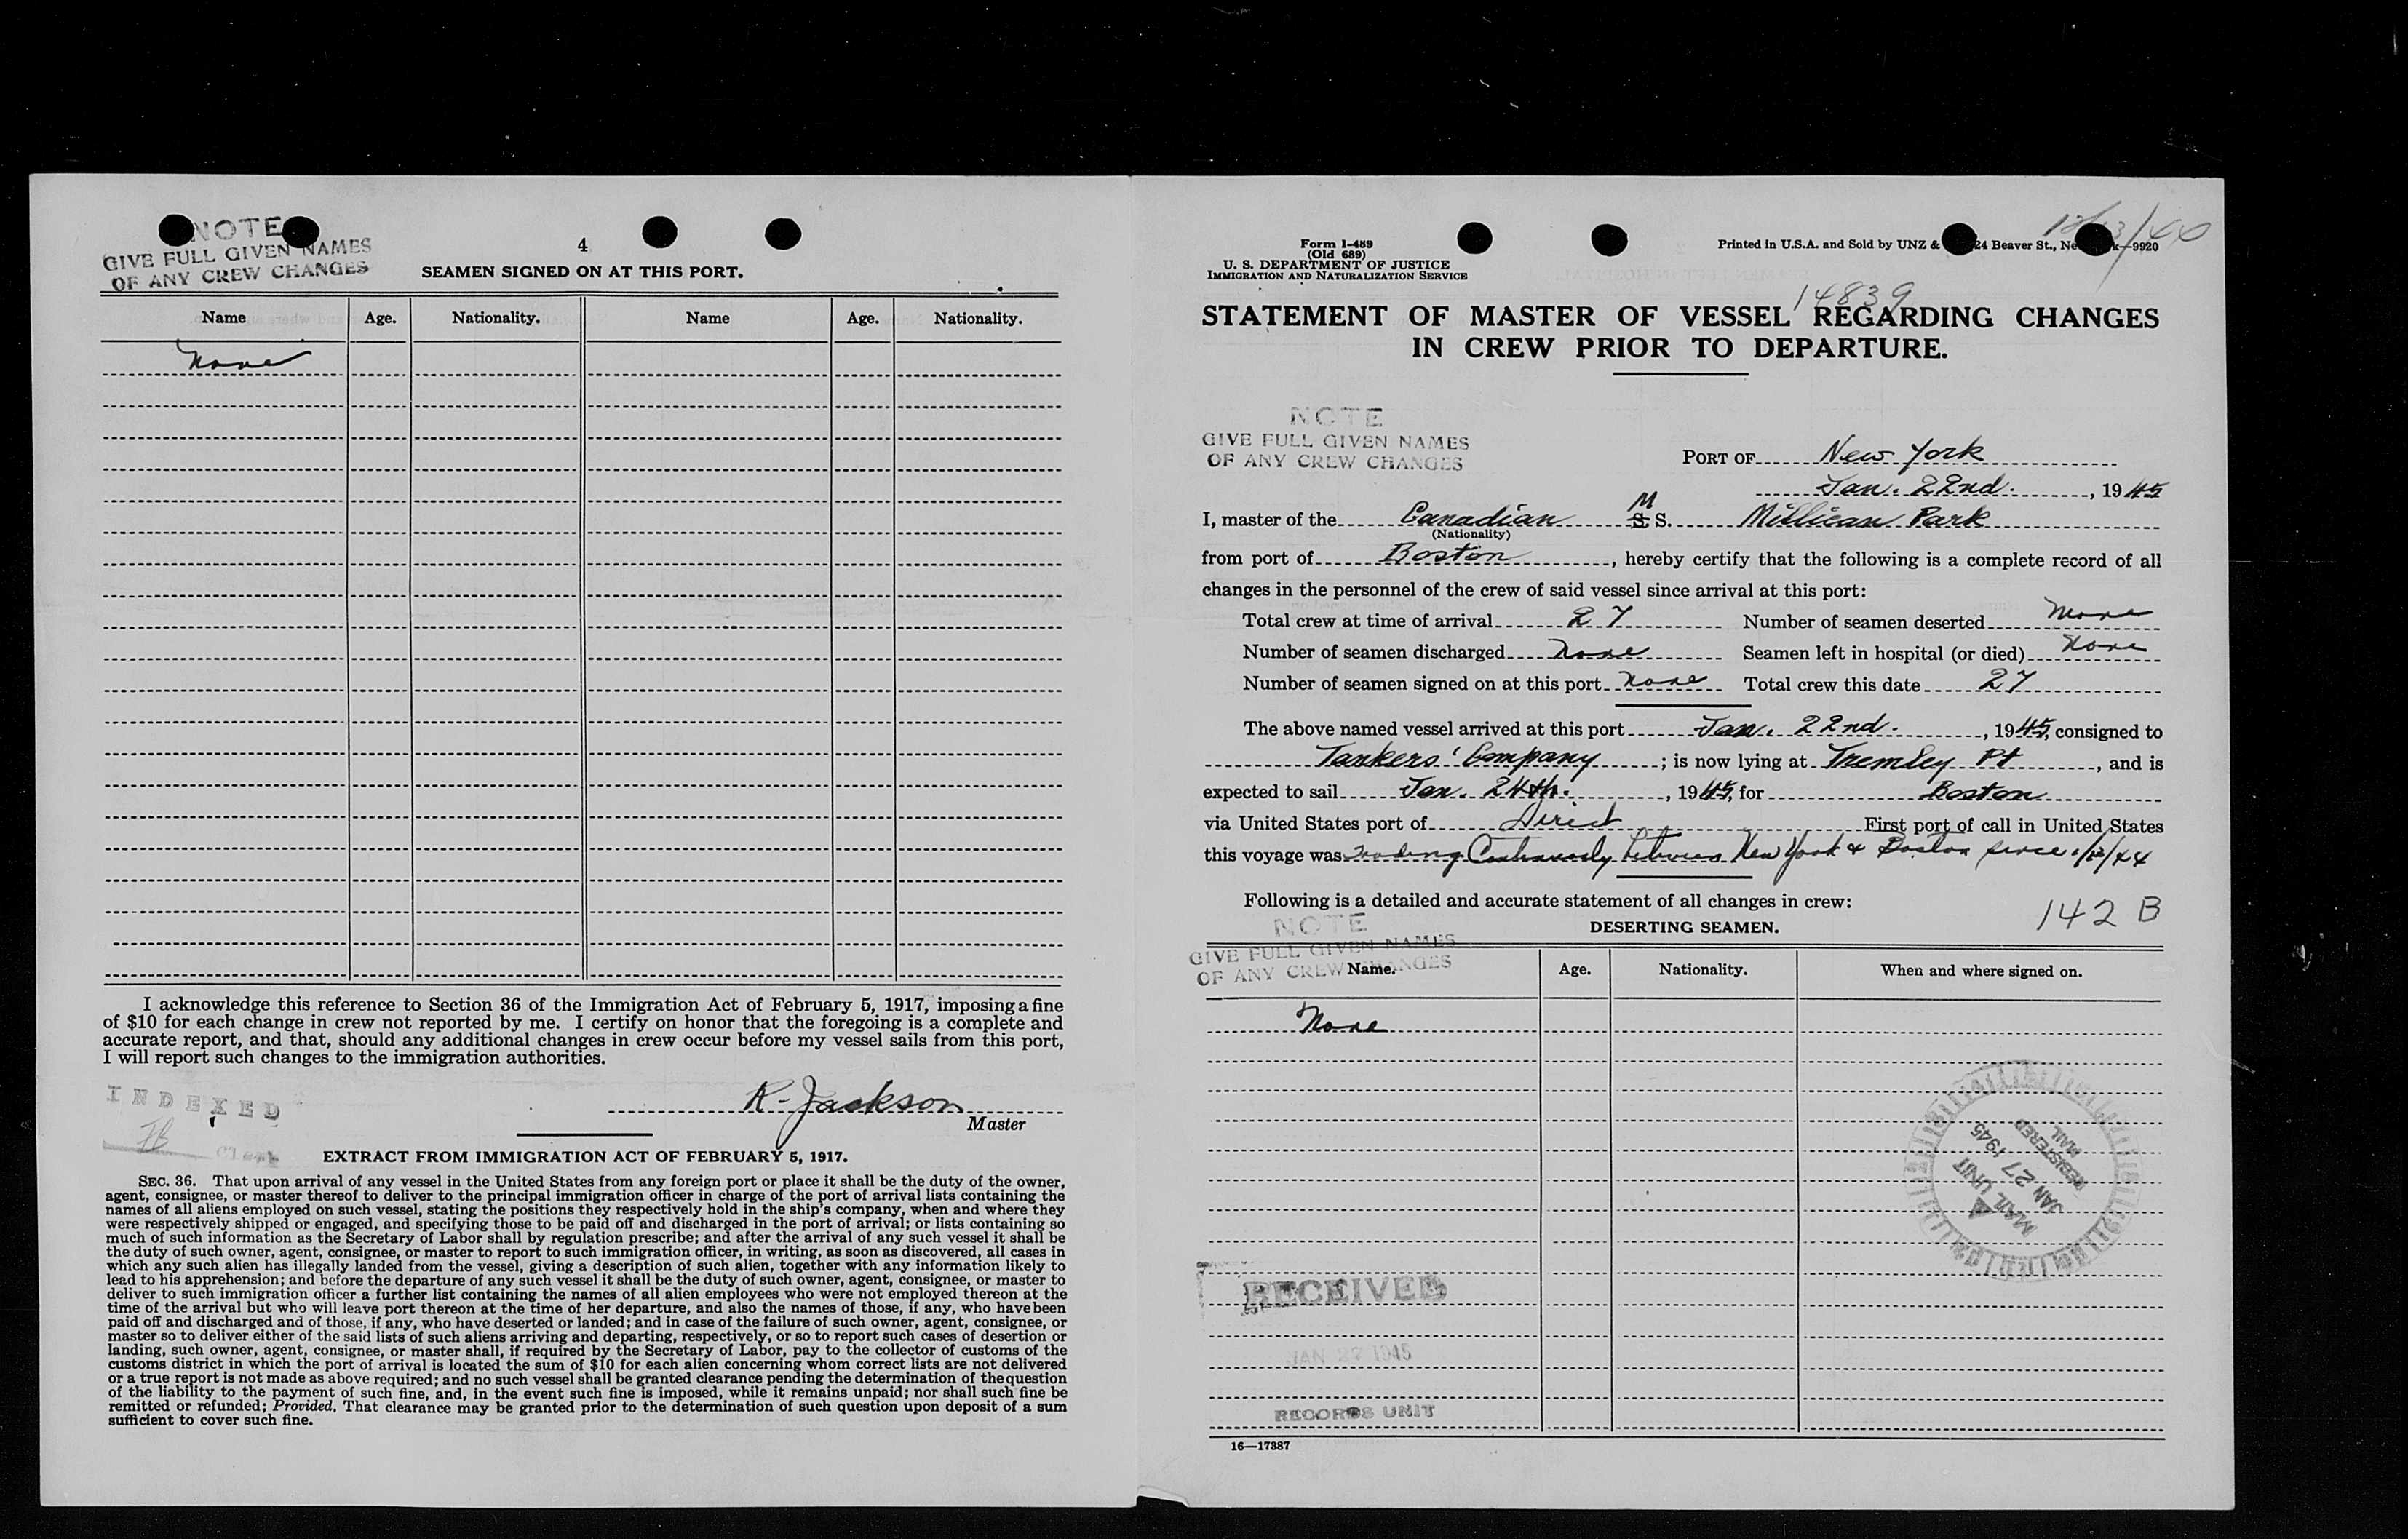 NOTE
GIVE FULL GIVEN NAMES
OF ANY CREW CHANGES
4
SEAMEN SIGNED ON AT THIS PORT.
Name Age. Nationality. Name Age. Nationality.
None
I acknowledge this reference to Section 36 of the Immigration Act of February 5, 1917, imposing a fine
of $10 for each change in crew not reported by me. I certify on honor that the foregoing is a complete and
accurate report, and that, should any additional changes in crew occur before my vessel sails from this port,
I will report such changes to the immigration authorities.
INDEXED
K. Jackson
Master
EXTRACT FROM IMMIGRATION ACT OF FEBRUARY 5, 1917.
SEC. 36. That upon arrival of any vessel in the United States from any foreign port or place it shall be the duty of the owner,
agent, consignee, or master thereof to deliver to the principal immigration officer in charge of the port of arrival lists containing the
names of all aliens employed on such vessel, stating the positions they respectively hold in the ship's company, when and where they
were respectively shipped or engaged, and specifying those to be paid off and discharged in the port of arrival; or lists containing so
much of such information as the Secretary of Labor shall by regulation prescribe; and after the arrival of any such vessel it shall be
the duty of such owner, agent, consignee, or master to report to such immigration officer, in writing, as soon as discovered, all cases in
which any such alien has illegally landed from the vessel, giving a description of such alien, together with any information likely to
lead to his apprehension; and before the departure of any such vessel it shall be the duty of such owner, agent, consignee, or master to
deliver to such immigration officer a further list containing the names of all alien employees who were not employed thereon at the
time of the arrival but who will leave port thereon at the time of her departure, and also the names of those, if any, who have been
paid off and discharged and of those, if any, who have deserted or landed; and in case of the failure of such owner, agent, consignee, or
master so to deliver either of the said lists of such aliens arriving and departing, respectively, or so to report such cases of desertion or
landing, such owner, agent, consignee, or master shall, if required by the Secretary of Labor, pay to the collector of customs of the
customs district in which the port of arrival is located the sum of $10 for each alien concerning whom correct lists are not delivered
or a true report is not made as above required; and no such vessel shall be granted clearance pending the determination of the question
of the liability to the payment of such fine, and, in the event such fine is imposed, while it remains unpaid; nor shall such fine be
remitted or refunded; Provided, That clearance may be granted prior to the determination of such question upon deposit of a sum
sufficient to cover such fine.
Form I-489
(Old 689)
U. S. DEPARTMENT OF JUSTICE
IMMIGRATION AND NATURALIZATION SERVICE
Printed in U.S.A. and Sold by UNZ & 24 Beaver St., Ne k—9920
14839
STATEMENT OF MASTER OF VESSEL REGARDING CHANGES
IN CREW PRIOR TO DEPARTURE.
NOTE
GIVE FULL GIVEN NAMES
OF ANY CREW CHANGES
PORT OF New York
Jan. 22nd., 1945
I, master of the Canadian M S. S. Millican Park
(Nationality)
from port of Boston, hereby certify that the following is a complete record of all
changes in the personnel of the crew of said vessel since arrival at this port:
Total crew at time of arrival 27 Number of seamen deserted None
Number of seamen discharged None Seamen left in hospital (or died) None
Number of seamen signed on at this port None Total crew this date 27
The above named vessel arrived at this port Jan. 22nd., 1945, consigned to
Tankers' Company; is now lying at Tremley Pt, and is
expected to sail Jan. 24th., 1945, for Boston
via United States port of Direct First port of call in United States
this voyage was Trading Continuously between New York & Boston since
Following is a detailed and accurate statement of all changes in crew:
142 B
DESERTING SEAMEN.
NOTE
GIVE FULL GIVEN NAMES
OF ANY CREW CHANGES
Name. Age. Nationality. When and where signed on.
None
MAIL UNIT
JAN 27 1945
REGISTERED
MAIL
RECEIVED
JAN 27 1945
RECORDS UNIT
16—17387